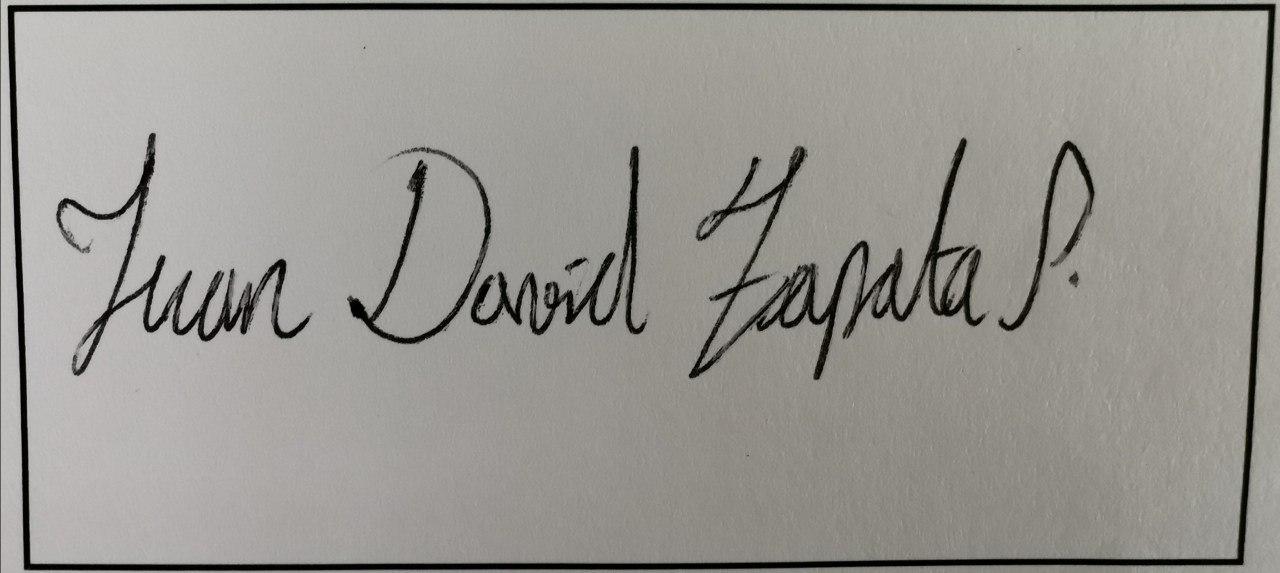 Juan David Zapata S.